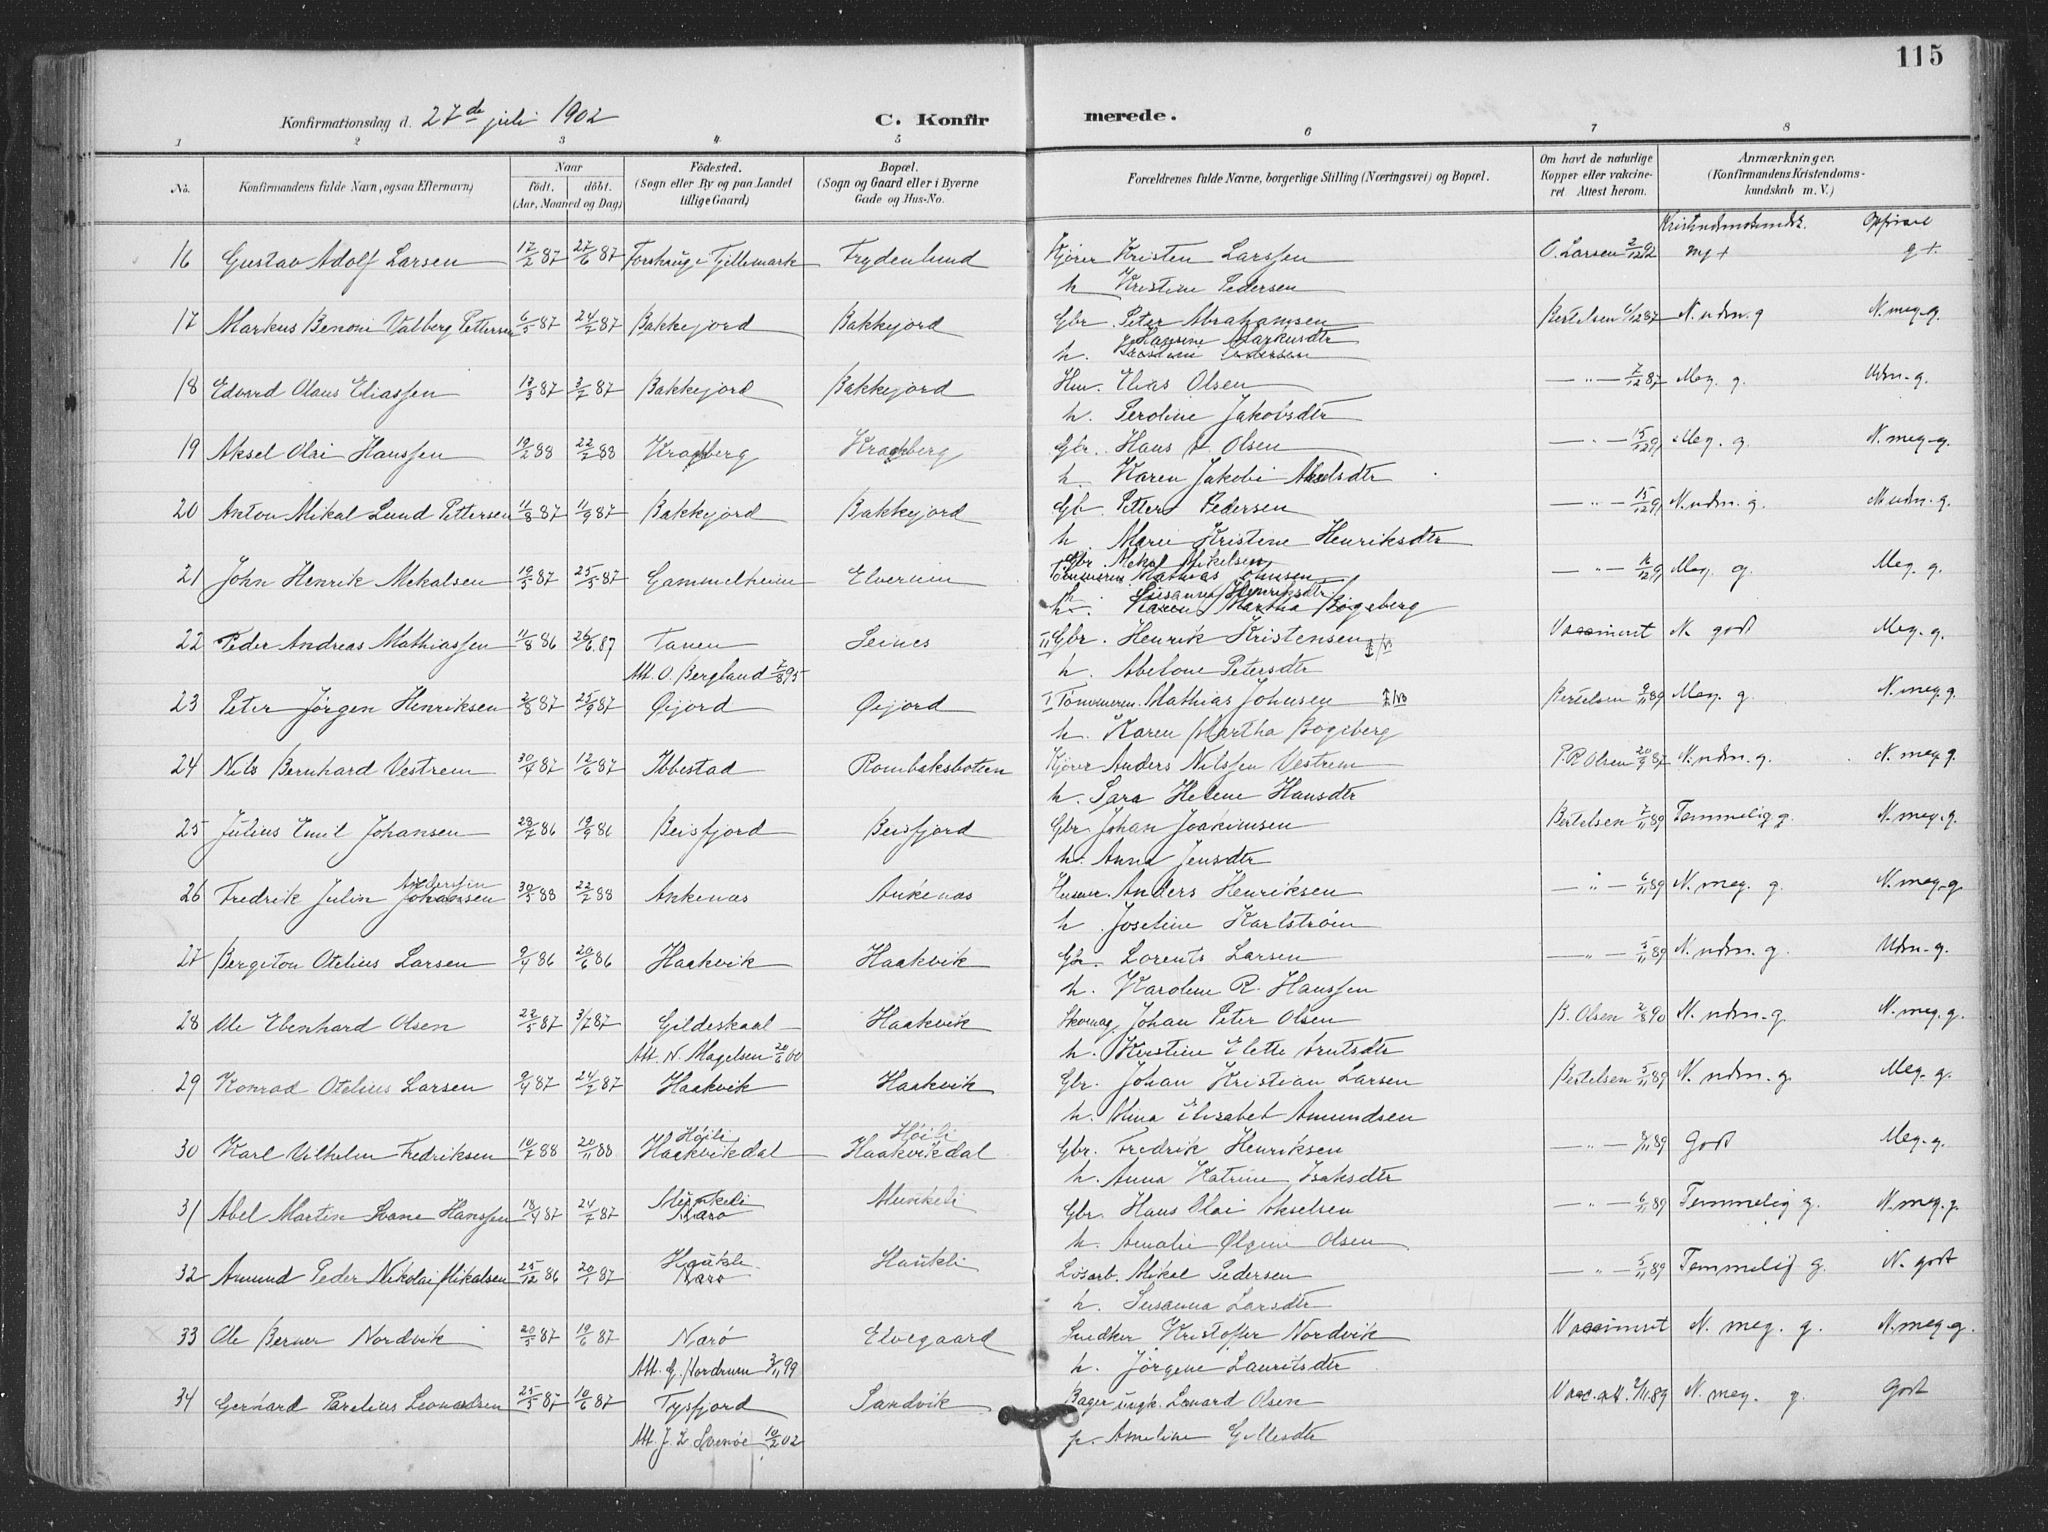 115
Konfirmationsdag d. 27de juli 1902 C. Konfirmerede.
1 2 3 4 5 6 7 8
No. Konfirmandens fulde Navn, ogsaa Efternavn) Naar födt. döbt. (Aar, Maaned og Dag) Födested. (Sogn eller By og paa Landet tillige Gaard) Bopæl. (Sogn og Gaard eller i Byerne Gade og Hus-No. Forældrenes fulde Navne, borgerlige Stilling (Næringsvei) og Bopæl. Om havt de naturlige Kopper eller vakcineret. Attest herom. Anmærkninger. (Konfirmandens Kristendomskundskab m. V.)
Opførsel
16 Gustav Adolf Larsen 17/2 87 27/6 87 Frydenlund Kjører Kristen Larssen O. Larsen 2/12 92 mg+ g+
h Kristine Pedersen
17 Markus Benoni Valberg Pettersen 6/5 87 24/7 87 Bakkejord Bakkejord Gbr. Peter Abrahamsen Bertelsen 6/12 87 N. udm. g N. meg. g.
Hansine Markusdtr
h.
18 Edvard Olaus Eliassen 13/3 87 3/7 87 Bakkejord Bakkejord Hm. Elias Olsen — " — 7/12 87 Meg. g. Udm. g.
h. Peroline Jakobsdtr
19 Aksel Olai Hanssen 19/2 88 22/7 88 Gbr. Hans A. Olsen — " — 15/12 91 Meg. g. N. meg. g.
h. Karen Jakobi Akselsdtr
20 Anton Mikal Lund Pettersen 11/8 87 11/9 87 Bakkejord Bakkejord Gb. Petter Pedersen — " — 15/12 91 N. udm. g. N. udm. g.
h. Marie Kristine Henriksdtr
Gbr Mekal Mikelsen
21 John Henrik Mekalsen 19/5 87 25/5 87 Gammelheim Elvenum Tømmerm. Mathias Johnsen — " — 16/12 91 Meg. g. Meg. g.
Susanna Henriksdtr
h. Karen Martha Bogeberg
22 Peder Andreas Mathiassen 11/8 86 26/6 87 Tanen Seines II Gbr. Henrik Kristensen Vaccineret N. godt Meg. g.
Att. O. Bergland 7/8 95 h. Abelone Petersdtr
23 Peter Jørgen Henriksen 2/8 87 25/9 87 Øijord Øijord I Tømmerm. Mathias Johnsen NB Bertelsen 9/11 89 Meg. g. N. meg. g.
h. Karen Martha Bogeberg
24 Nils Bernhard Vestrem 30/4 87 12/6 87 Ibbestad Rombaksbotten Kjører Anders Nilssen Vestrem P.R Olsen 20/9 87 N. udm. g. N. meg. g.
h. Sara Helene Hansdtr
25 Julius Emil Johansen 28/7 86 19/9 86 Beisfjord Beisfjord Gbr. Johan Joakimsen Bertelsen 7/11 89 Temmelig g. N. meg. g.
h. Anna Jensdtr
Anderssen
26 Fredrik Julin Johansen 30/5 88 22/7 88 Ankenas Ankenas Husm. Anders Henriksen — " — 6/11 89 N. meg. g. N. meg. g.
h. Josefine Karlstrøm
27 Bergiton Otelius Larsen 9/4 86 20/6 86 Haakvik Haakvik Gbr. Lorents Larsen — " — 5/11 89 N. udm. g. Udm. g.
h. Karoline R. Hanssen
28 Ole Ebenhard Olsen 22/5 87 3/7 87 Gildeskaal Haakvik Johan Peter Olsen B. Olsen 2/8 90 N. udm. g. N. meg. g.
Att. N. Magelsen 20/6 00 h. Kerstine Elette Arntsdtr
29 Konrad Otelius Larsen 9/4 87 24/7 87 Haakvik Haakvik Gbr. Johan Kristian Larsen Bertelsen 5/11 89 N. udm. g. Meg. g.
h. Alma Elisabet Amundsen
Høili Høili
30 Karl Vilhelm Fedriksen 10/7 88 20/11 88 Haakvikdal Haakvikdal Gbr. Fredrik Henriksen — " — 9/11 89 Godt Meg. g.
h. Anna Katrine Isaksdtr
Munkeli
31 Abel Martin Svane Hanssen 18/4 87 24/7 87 Narø Munkeli Gbr. Hans Olai Akselsen — " — 6/11 89 Temmelig g. N. meg. g.
h. Amalie Olgine Olsen
Haukli
32 Amund Peder Nikolai Mikalsen 25/12 86 20/1 87 Narø Haukli Løsarb. Mikal Pedersen — " — 5/11 89 Temmelig g. N. godt
h. Susanna Larsdtr
33 Ole Berner Nordvik 20/5 87 19/6 87 Narø Elvegaard Snedker Kristoffer Nordvik Vaccineret N. meg. g. N. meg. g.
Att. G. Nordrum 3/11 99 h. Jørgene Lauritsdtr
34 Gerhard Parelius Leonardsen 25/5 87 10/6 87 Tysfjord Sandvik Bager ungk. Lenard Olsen Vacc. att. 9/11 89 N. meg. g. Godt
Att. J. L. 10/2 02 p. Ameline Gillesdtr